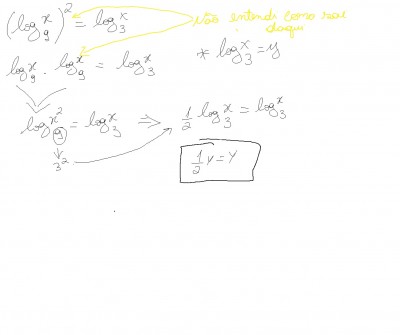 (log₉ˣ)² = log₃ˣ
Não entendi como sai daqui
log₉ˣ · log₉ˣ = log₃ˣ
* log₃ˣ = y
log₉ˣ² = log₃ˣ ⇒ 1/2 log₃ˣ = log₃ˣ
3²
1/2 y = y